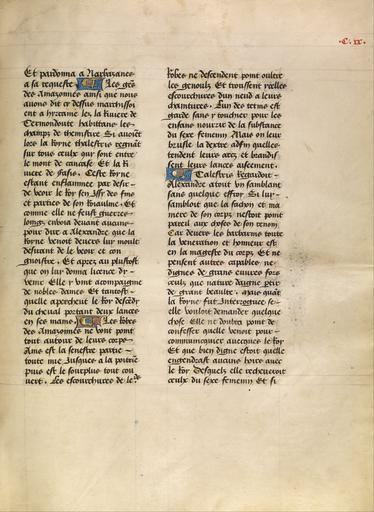 C. ix.
Et pardonna a Narbazanes
a sa requeste Les
des Amazones ainsi que nous
auons dit cy dessus marchissoi
ent a hyrcanie lez la riuiere de
Termondonte habitans les
champs de themistire Si auoiet
lors la Royne thalestris regnat
sur tous ceulx qui sont entre
le mont de caucase Et la Ri
uiere de fasis. Ceste royne
estant enflammee par desir
de veoir le Roy sen yssy des fins
et parties de son Roiaulme. Et
comme elle ne feust gueres
loings enuoia deuant aucuns
pour dire a Alexandre que la
Royne venoit deuers luy moult
desirant de le veoir et con
gnoistre. Et apres au plustost
que on luy donna licence de
venir Elle y vint acompaignee
de nobles dames Et tantost
quelle apercheut le Roy descedy
du cheual portant deux lances
en ses mains Les robes
des Amazones ne vont point
tout autour de leurs corps
Ains est la senestre partie
toute nue Jusques a la poitrine
puis est le sourplus tout cou
uert. Les escourchures de le
robes ne descendent point oultre
les genoulz Et troussent icelles
escourchures dun neud a leurs
chaintures. Lun des tetins est
garde sain y toucher pour les
enfans nourrir de la substance
du sexe femenin Mais on leur
brusle la dextre affin quelles
tendent leurs arcz et brandis
sent leurs lances aisement.
Talestris Regardoit
Alexandre atout vn samblant
sans quelque effroy Si luy
sambloit que la fachon et ma
niere de son corps nestoit point
pareil aux choses de son renom
Car deuers les barbarins toute
la veneration et honneur est
en la mageste du corps Et ne
pensent autres capables ne
dignes de grans euures fors
ceulx que nature daigne pour
de grant beaulte. mais quant
la Royne fut Interroguee se
elle vouloit demander quelque
chose Elle ne doubta point de
confesser quelle venoit pour
communiquier auecques le Roy
Et que bien digne estoit quelle
engendrast aucuns hoirs auec
le Roy Desquelz elle recheueroit
ceulx du sexe femenin Et si